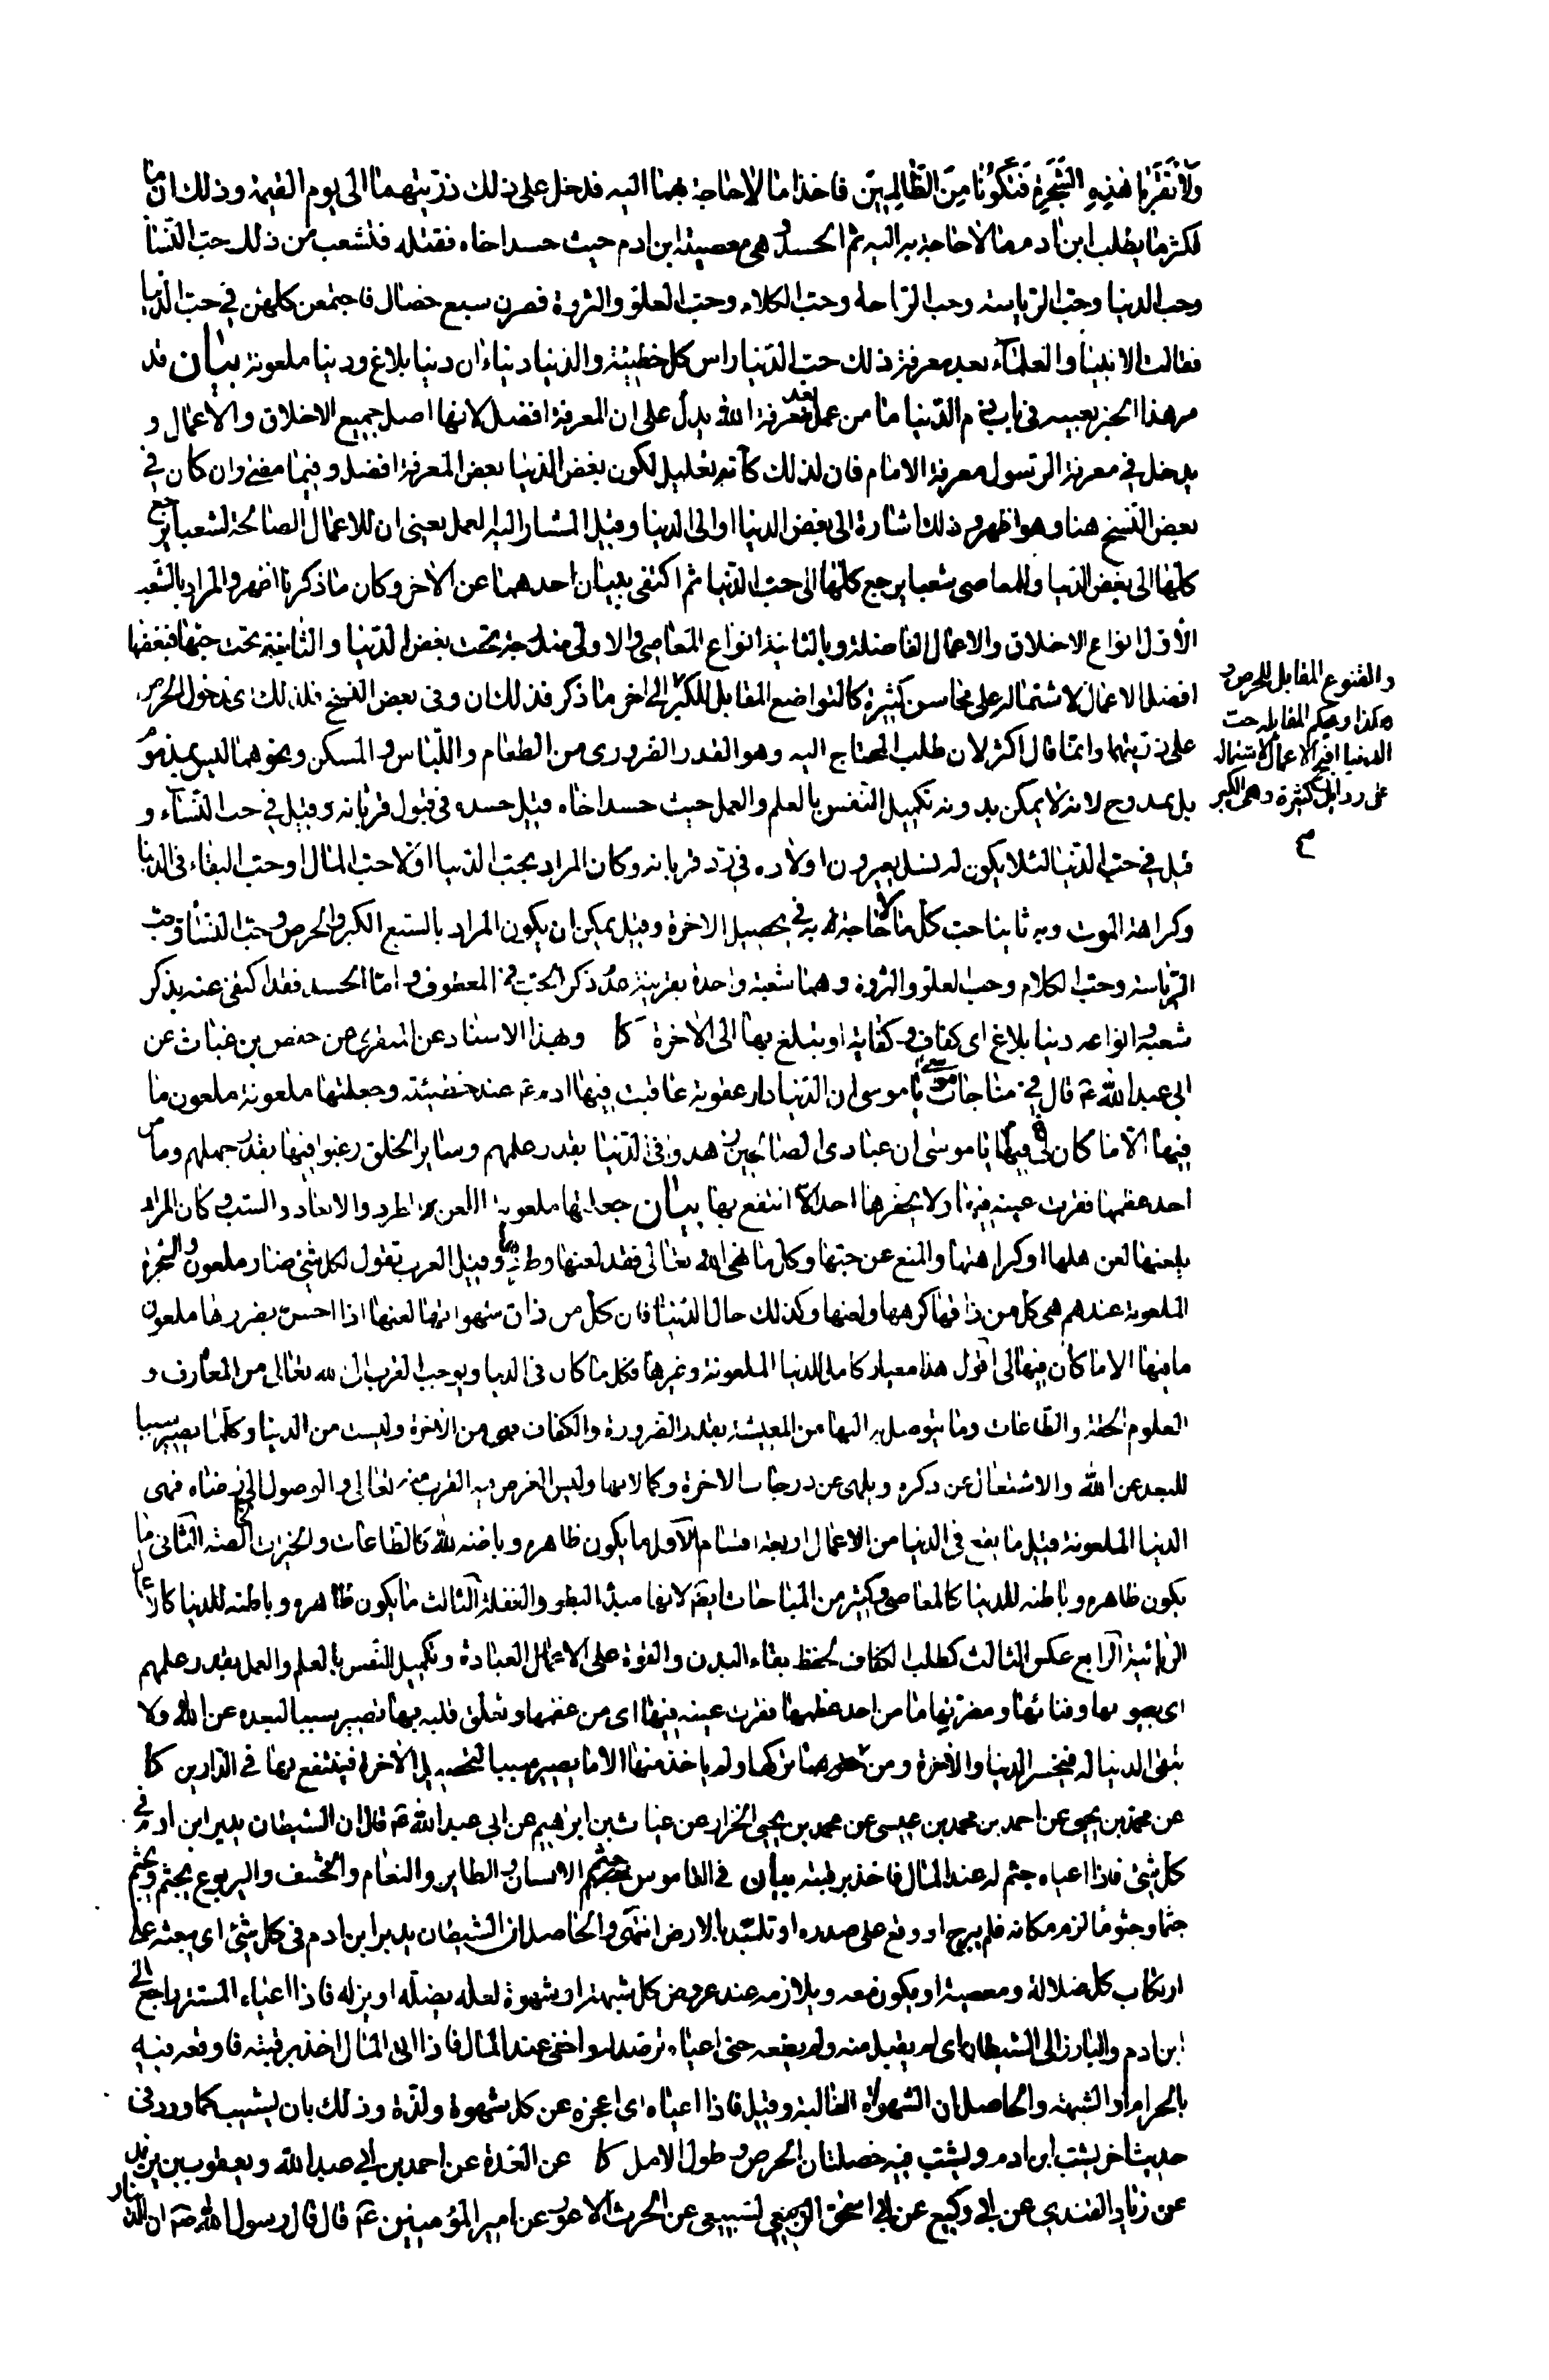 ولا تقربا هذه الشجرة فتكونا من الظالمين فاخذا ما لا حاجة بهما اليه فدخل على ذلك ذريتهما الى يوم القيمة وذلك ان ما
اكثر ما يطلب ابن ادم ما لا حاجة به اليه ثم الحسد وهي معصية ابن ادم حيث حسد اخاه فقتله فتشعب من ذلك حب النساء
وحب الدنيا وحب الرياسة وحب الراحة وحب الكلام وحب العلو والثروة فصرن سبع خصال فاجتمعن كلهن في حب الدنيا
فقالت الانبياء والعلماء بعد معرفة ذلك حب الدنيا راس كل خطيئة والدنيا دنياءان دنيا بلاغ ودنيا ملعونة بيان قد
مر هذا الخبر بعينه في باب ذم الدنيا ما من عمل بعد معرفة الله يدل على ان المعرفة افضل لانها اصل جميع الاخلاق والاعمال و
يدخل في معرفة الرسول معرفة الامام فان لذلك كانه تعليل لكون بغض الدنيا بعض المعرفة افضل وفيما مضى وان كان في
بعض النسخ هنا وهو اظهر وذلك اشارة الى بغض الدنيا او الى الدنيا وقيل المشار اليه العمل يعني ان للاعمال الصالحة لشعبا يرجع
كلها الى بغض الدنيا وللمعاصي شعبا يرجع كلها الى حب الدنيا ثم اكتفى ببيان احدهما عن الاخر وكان ما ذكرنا اظهر والمراد بالشعب
الاول انواع الاخلاق والاعمال الفاضلة وبالثانية انواع المعاصي والاولى مندرجة تحت بغض الدنيا والثانية تحت حبها فبغضها
افضل الاعمال لاشتماله على محاسن كثيرة كالتواضع المقابل للكبر الى اخر ما ذكر فذلك ان وفي بعض النسخ فلذلك اي لدخول الحرص
على ذريتهما وانما قال اكثر لان طلب المحتاج اليه وهو القدر الضروري من الطعام واللباس والمسكن ونحوهما ليس بمذموم
بل ممدوح لانه لا يمكن بدونه تكميل النفس بالعلم والعمل حيث حسد اخاه قيل حسده في قبول قربانه وقيل في حب النساء و
قيل في حب الدنيا لئلا يكون له نسل يعيرون اولاده في رد قربانه وكان المراد بحب الدنيا اولا حب المال او حب البقاء في الدنيا
وكراهة الموت وبه ثانيا حب كل ما لا حاجة به في تحصيل الاخرة وقيل يمكن ان يكون المراد بالسبع الكبر والحرص وحب النساء وحب
الرياسة وحب الكلام وحب العلو والثروة وهما شعبة واحدة بقرينة عدم ذكر الحب في المعطوف واما الحسد فقد اكتفى عنه بذكر
شعبه وانواعه دنيا بلاغ اي كفاف وكفاية او يتبلغ بها الى الاخرة كا وبهذا الاسناد عن المنقري عن حفص بن غياث عن
ابي عبد الله ع قال في مناجات موسى يا موسى ان الدنيا دار عقوبة عاقبت فيها ادم ع عند خطيئته وجعلتها ملعونة ملعون ما
فيها الا ما كان فيها لي يا موسى ان عبادي الصالحين زهدوا في الدنيا بقدر علمهم وساير الخلق رغبوا فيها بقدر جهلهم وما من
احد عظمها فقرت عينه فيها ولا يحقرها احد الا انتفع بها بيان جعلتها ملعونة اللعن الطرد والابعاد والسب وكان المراد
بلعنها لعن اهلها او كراهتها والمنع عن حبها وكل ما نهى الله تعالى فقد لعنها وقيل العرب تقول لكل شيء ضار ملعون والشجرة
الملعونة عندهم هي كل من ذاقها كرهها ولعنها وكذلك حال الدنيا فان كل من ذاق شهواتها لعنها اذا احس بضررها ملعون
ما فيها الا ما كان فيها لي اقول هذا معيار كامل للدنيا الملعونة وغيرها فكل ما كان في الدنيا ويوجب القرب الى الله تعالى من المعارف و
العلوم الحقة والطاعات وما يتوصل به اليها من المعيشة بقدر الضرورة والكفاف فهي من الاخرة وليست من الدنيا وكلما يصير سببا
للبعد عن الله والاشتغال عن ذكره ويلهي عن درجات الاخرة وكمالاتها وليس الغرض فيه القرب منه تعالى والوصول الى رضاه فهي
الدنيا الملعونة قيل ما يقع في الدنيا من الاعمال اربعة اقسام الاول ما يكون ظاهره وباطنه لله كالطاعات والخيرات الخالصة الثاني ما
يكون ظاهره وباطنه للدنيا كالمعاصي وكثير من المباحات ايضا لانها مبدأ البطر والغفلة الثالث ما يكون ظاهره وباطنه للدنيا كالاعمال
الريائية الرابع عكس الثالث كطلب الكفاف لحفظ بقاء البدن والقوة على الاعمال العبادة وتكميل النفس بالعلم والعمل بقدر علمهم
اي بعيوبها وفنائها ومضرتها ما من احد عظمها فقرت عينه فيها اي من عظمها وتعلق قلبه بها تصير سببا لبعده عن الله ولا
تبقى الدنيا له فيخسر الدنيا والاخرة ومن حقرها تركها ولم ياخذ منها الا ما يصير سببا لتحصيل الاخرة فينتفع بها في الدارين كا
عن محمد بن يحيى عن احمد بن محمد بن عيسى عن محمد بن يحيى الخزاز عن غياث بن ابراهيم عن ابي عبد الله ع قال ان الشيطان يدير ابن ادم في
كل شيء فاذا اعياه جثم له عند المال فاخذ برقبته بيان في القاموس جثم الانسان والطاير والنعام والخشف واليربوع يجثم ويجثم
جثما وجثوما لزم مكانه فلم يبرح او وقع على صدره او تلبد بالارض انتهى والحاصل ان الشيطان يدير ابن ادم في كل شيء اي يبعثه على
ارتكاب كل ضلالة ومعصية او يكون معه ويلازمه عند عروض كل شبهة او شهوة لعله يضله او يزله فاذا اعياه المستتر راجع الى
ابن ادم والبارز الى الشيطان اي لم يقبل منه ولم يطعه حتى اعياه ترصد له واختفى عند المال فاذا اتى المال اخذ برقبته فاوقعه فيه
بالحرام او الشبهة والحاصل ان الشهوة الغالبة وقيل فاذا اعياه اي اعجزه عن كل شهوة ولذة وذلك بان يشيب كما ورد في
حديث اخر يشيب ابن ادم ويشب فيه خصلتان الحرص وطول الامل كا عن العدة عن احمد بن ابي عبد الله ويعقوب بن يزيد
عن زياد القندي عن ابي وكيع عن ابي اسحق السبيعي عن الحرث الاعور عن امير المؤمنين ع قال قال رسول الله ص ان الدينار
والقنوع المقابل للحرص و
هكذا وبحكم المقابلة حب
الدنيا اقبح الاعمال لاشتماله
على رذايل كثيرة وهي الكبر